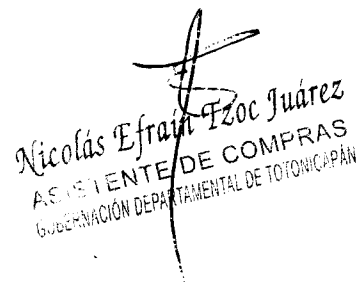 Nicolás Efraín Tzoc Juárez
ASISTENTE DE COMPRAS
GOBERNACIÓN DEPARTAMENTAL DE TOTONICAPÁN